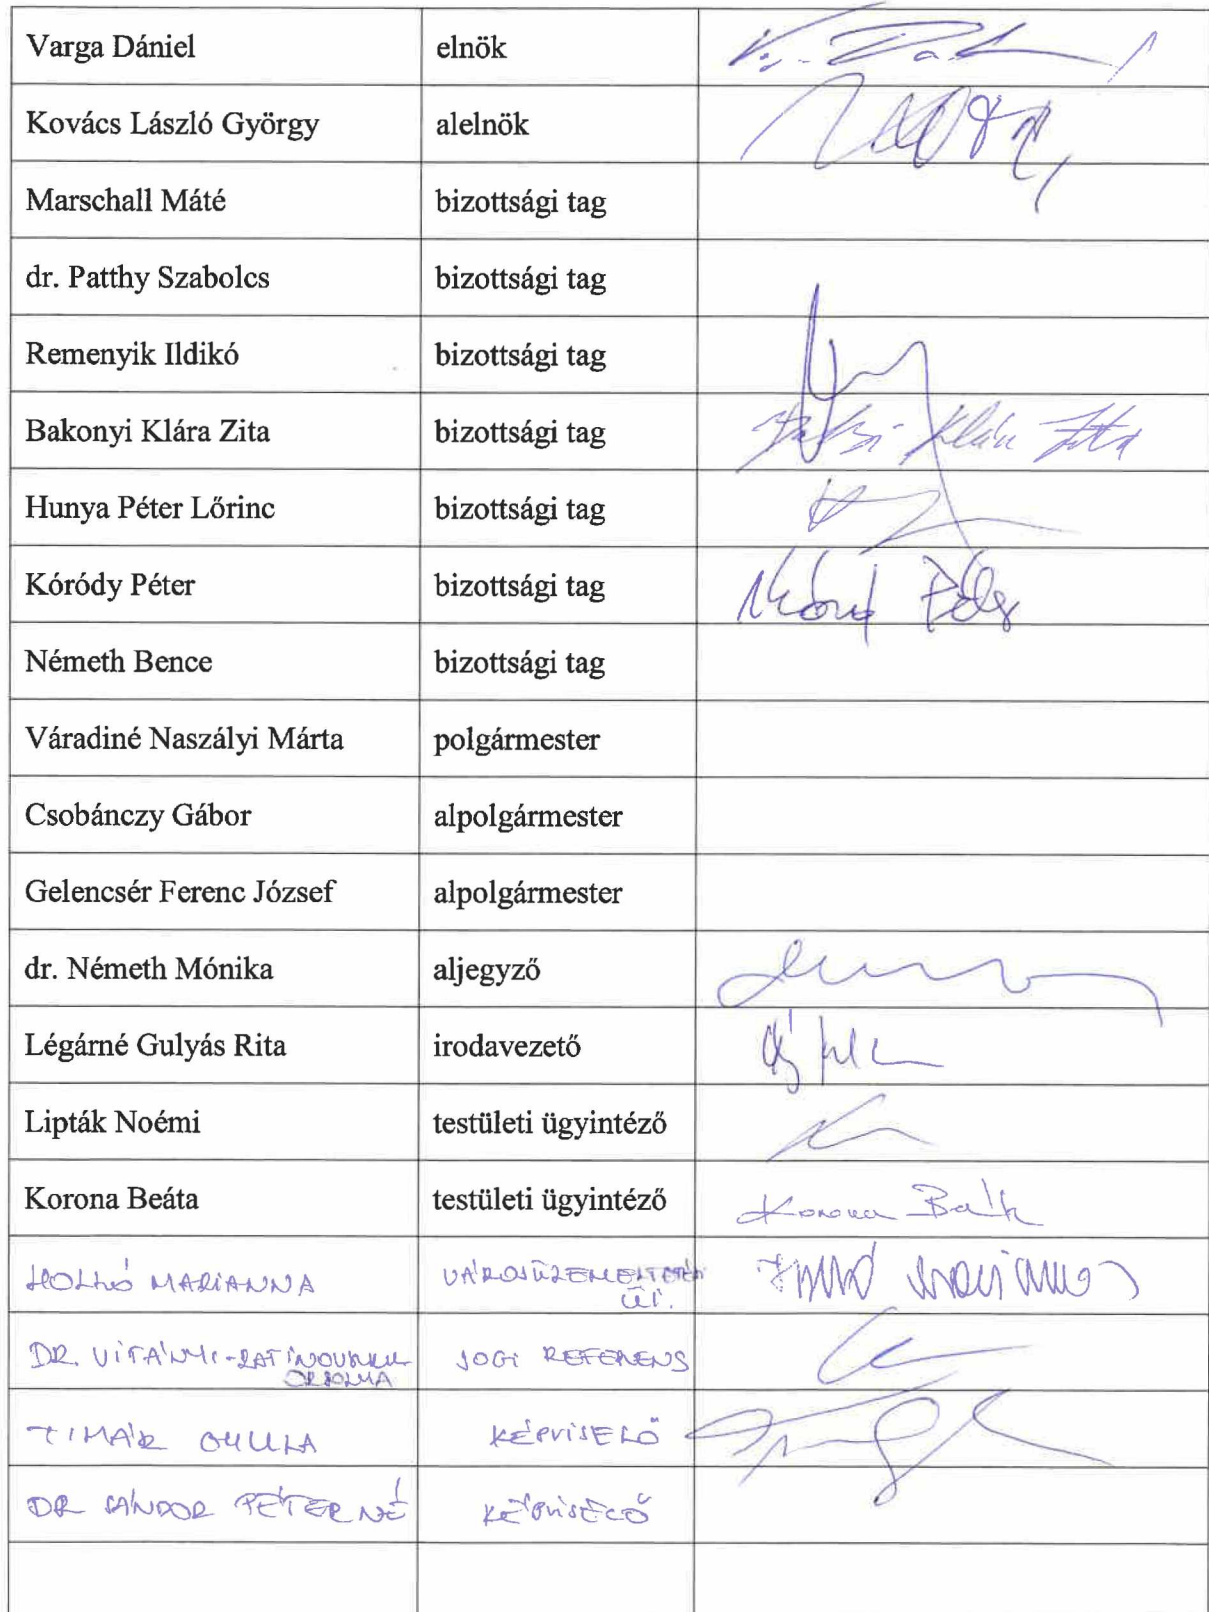 Varga Dániel elnök
Kovács László György alelnök
Marschall Máté bizottsági tag
dr. Patthy Szabolcs bizottsági tag
Remenyik Ildikó bizottsági tag
Bakonyi Klára Zita bizottsági tag
Hunya Péter Lőrinc bizottsági tag
Kóródy Péter bizottsági tag
Németh Bence bizottsági tag
Váradiné Naszályi Márta polgármester
Csobánczy Gábor alpolgármester
Gelencsér Ferenc József alpolgármester
dr. Németh Mónika aljegyző
Légárné Gulyás Rita irodavezető
Lipták Noémi testületi ügyintéző
Korona Beáta testületi ügyintéző Korona Beáta
HOLLÓ MARIANNA VÁROSÜZEMELTETÉSI Holló Marianna
DR. JOGI REFERENS
ORSOLYA
TIMÁR GYULA KÉPVISELŐ
DR SÁNDOR PÉTERNÉ KÉPVISELŐ